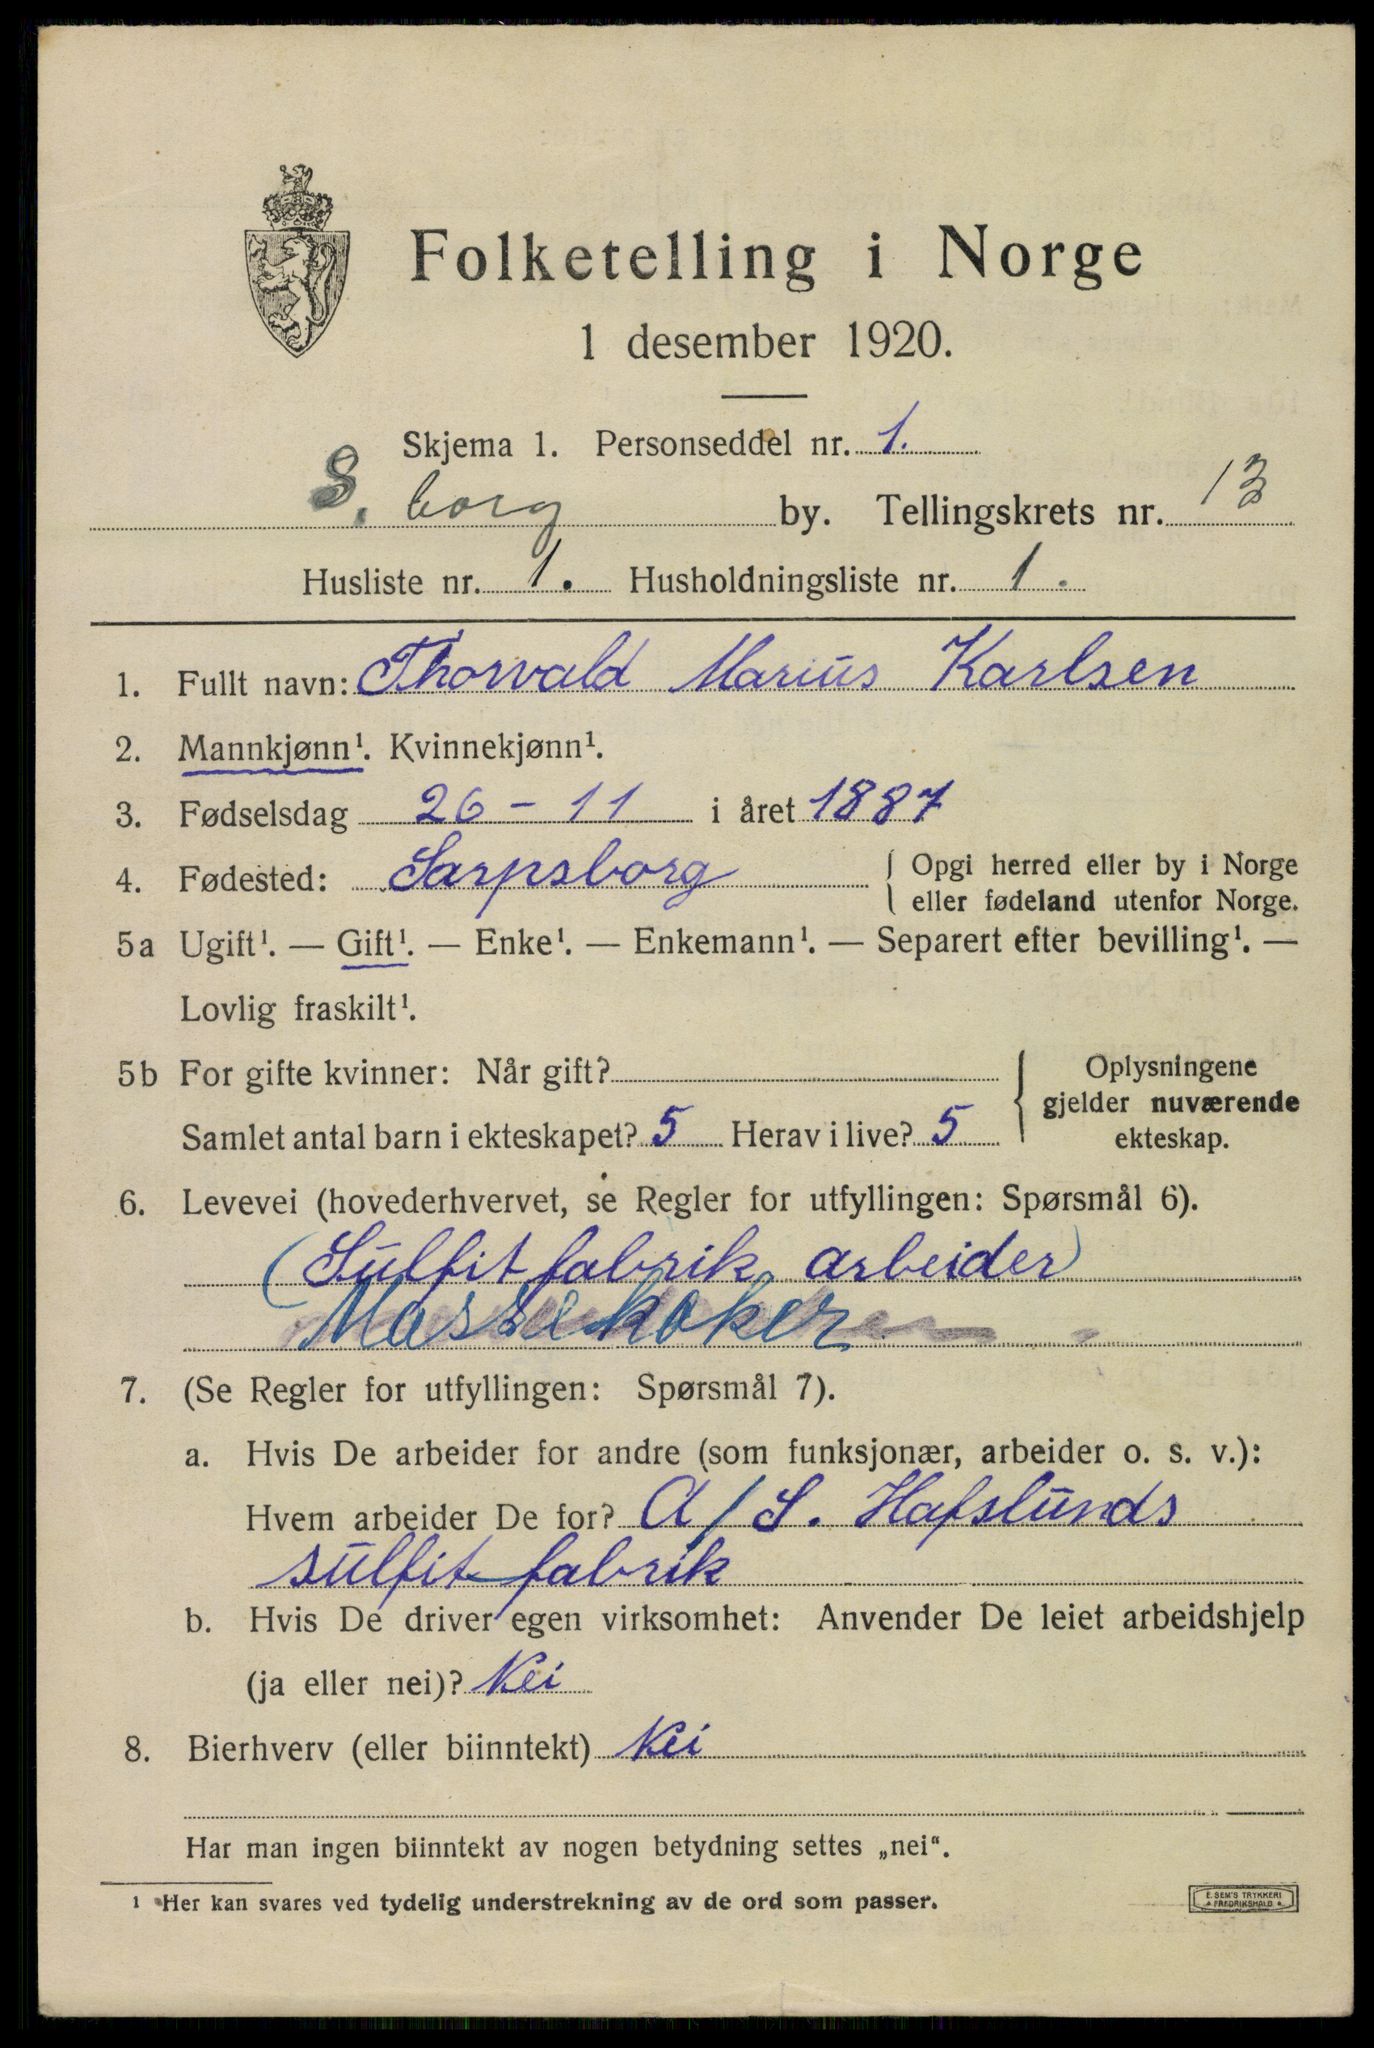 Folketelling i Norge
1 desember 1920.
Skjema 1. Personseddel nr. 1.
S. borg by. Tellingskrets nr. 13
Husliste nr. 1. Husholdningsliste nr. 1.
1. Fullt navn: Thorvald Marius Karlsen
2. Mannkjønn¹. Kvinnekjønn¹.
3. Fødselsdag 26 - 11 i året 1887
4. Fødested: Sarpsborg { Opgi herred eller by i Norge
eller fødeland utenfor Norge.
5a Ugift¹. — Gift¹. — Enke¹. — Enkemann¹. — Separert efter bevilling¹. —
Lovlig fraskilt¹.
5b For gifte kvinner: Når gift?
Samlet antal barn i ekteskapet? 5 Herav i live? 5
{ Oplysningene
gjelder nuværende
ekteskap.
6. Levevei (hovederhvervet, se Regler for utfyllingen: Spørsmål 6).
(Sulfitfabrik arbeider)
Massekoker
7. (Se Regler for utfyllingen: Spørsmål 7).
a. Hvis De arbeider for andre (som funksjonær, arbeider o. s. v.):
Hvem arbeider De for? A/S. Hafslunds
sulfitfabrik
b. Hvis De driver egen virksomhet: Anvender De leiet arbeidshjelp
(ja eller nei)? Nei
8. Bierhverv (eller biinntekt) Nei
Har man ingen biinntekt av nogen betydning settes „nei“.
¹ Her kan svares ved tydelig understrekning av de ord som passer.
E. SEM'S TRYKKERI
• FREDRIKSHALD •